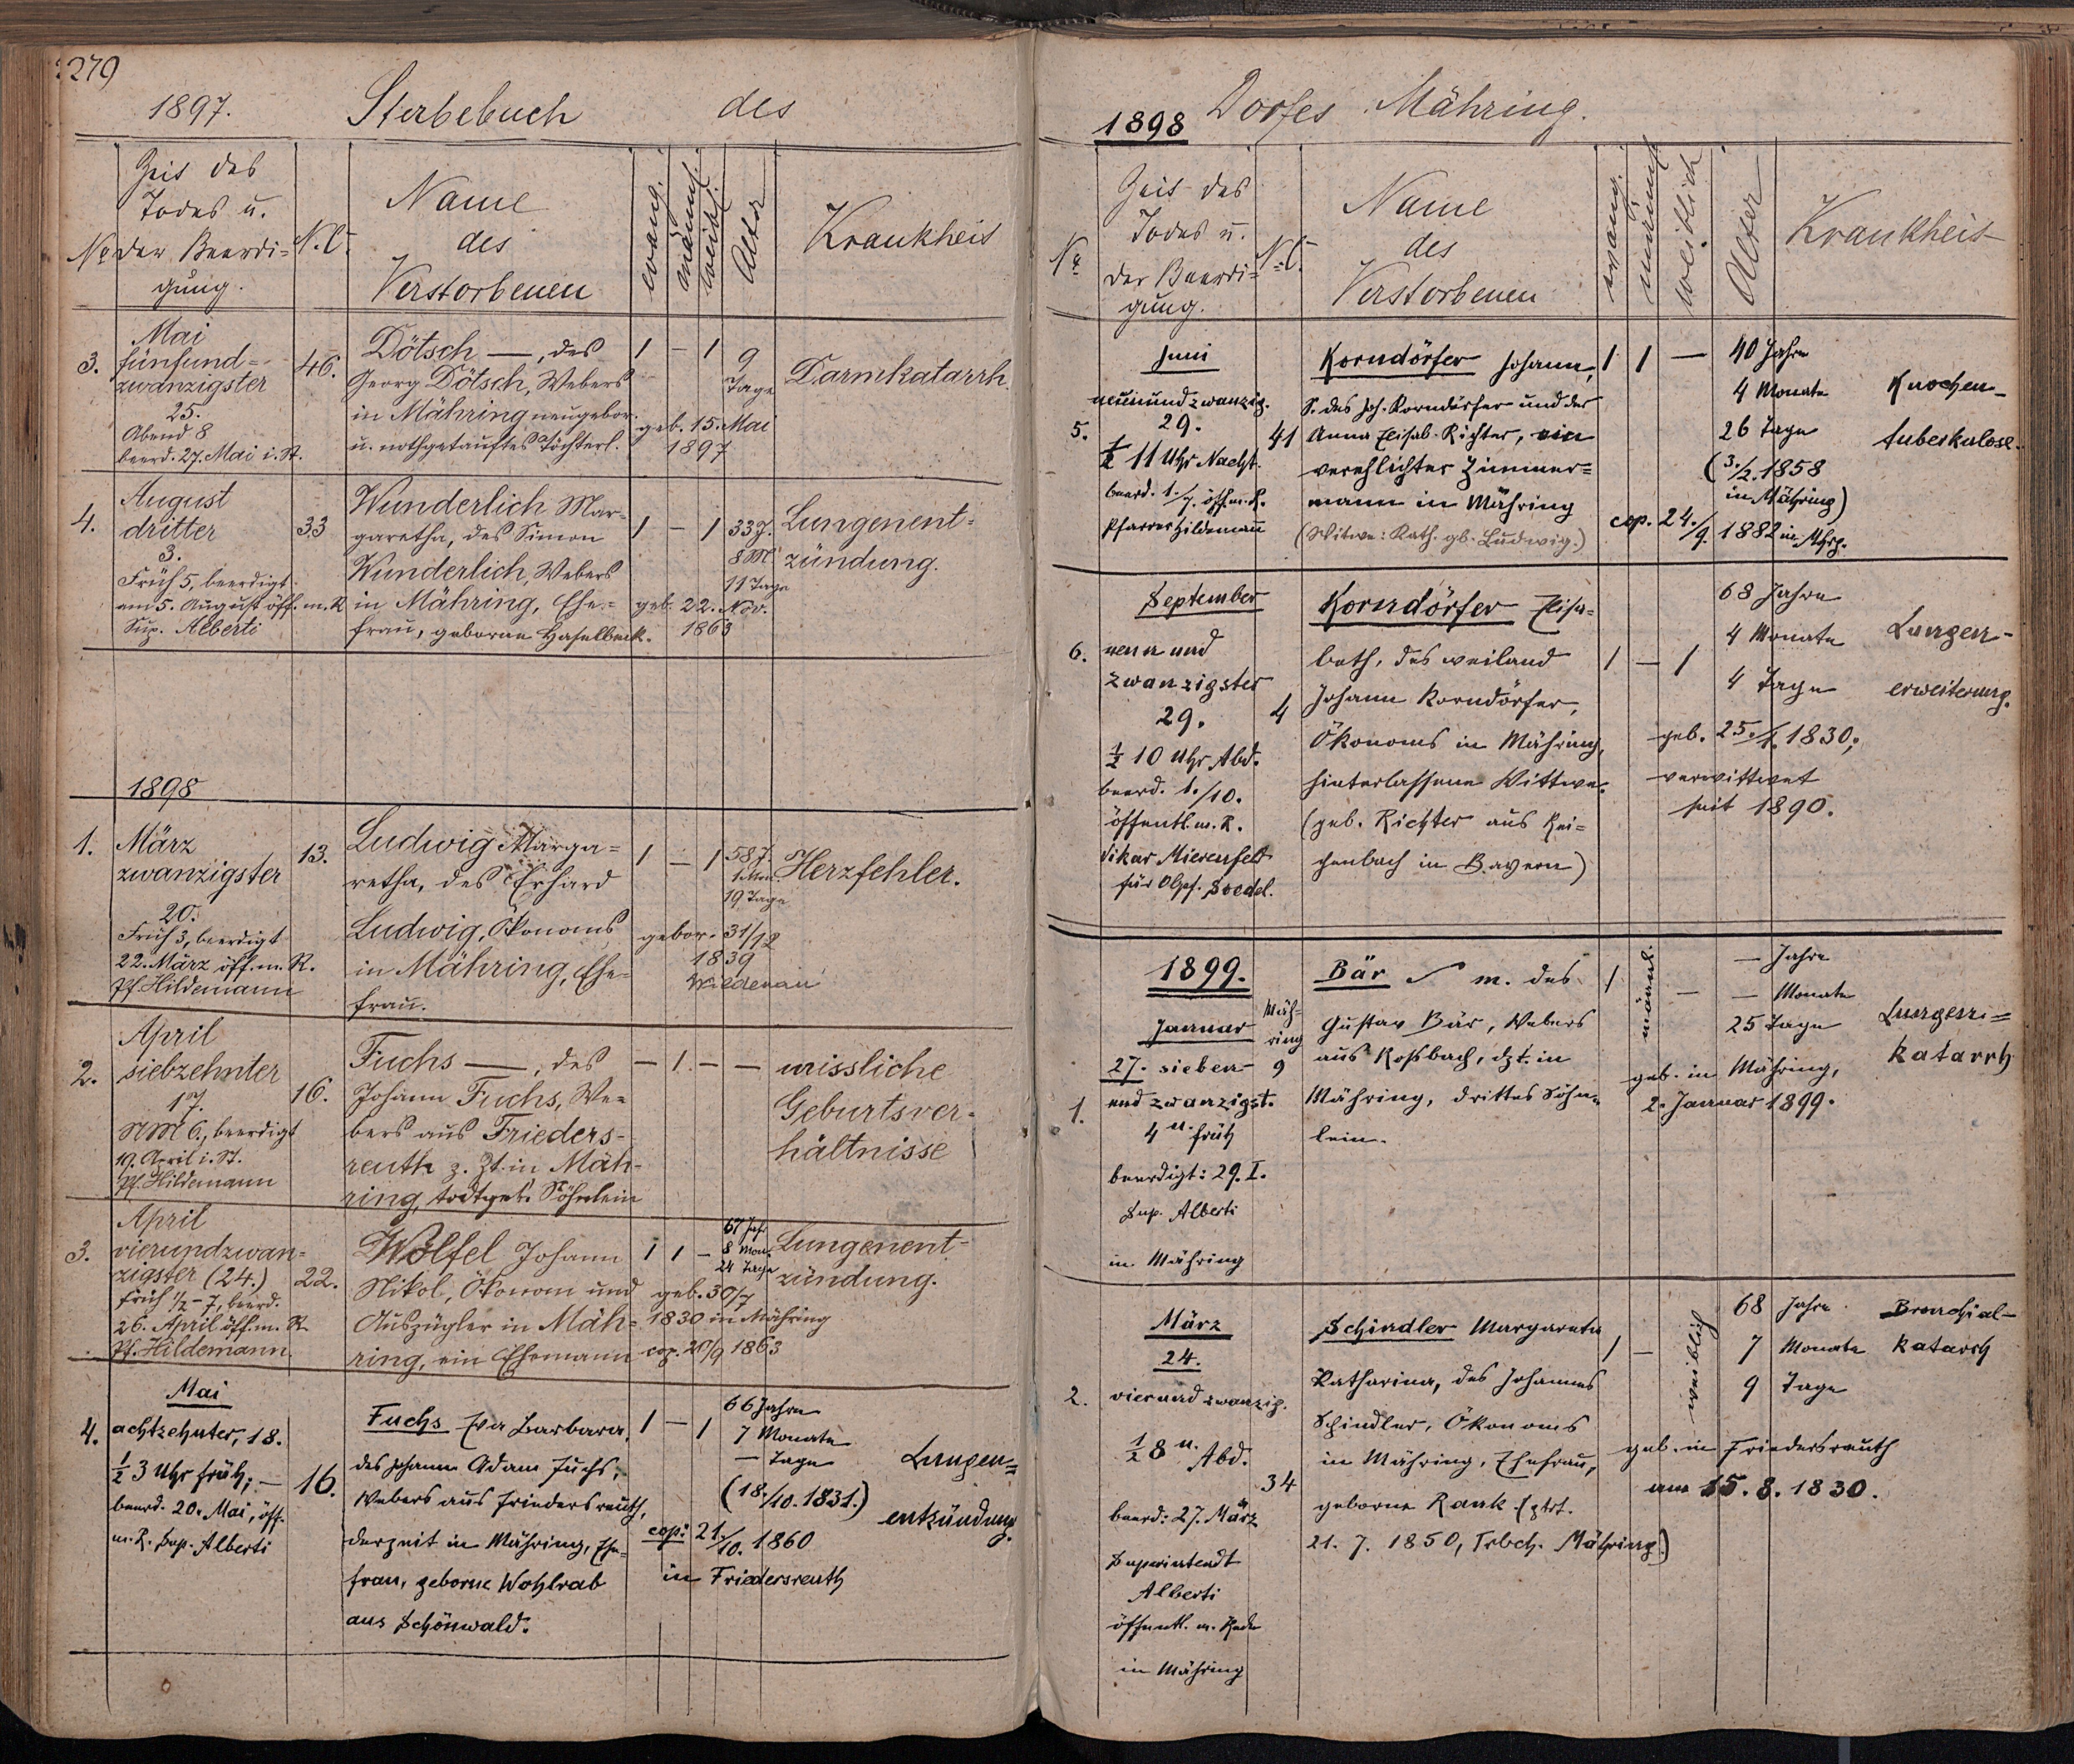 279
1897. Sterbebuch des
No
Zeit des
Todes u.
der Beerdi=
gung.
N.C.
Name
des
Verstorbenen
evang.
männl.
weibl.
Alter
Krankheit
3.
Mai
fünfund=
zwanzigster
25.
Abend 8
beerd. 27. Mai i. St.
46.
Dötsch —, des
Georg Dötsch, Webers
in Mähring neugebor.
u. nothgetauftes Töchterl.
1 – 1
9
Tage
geb. 15. Mai
1897
Darmkatarrh.
4.
August
dritter
3.
Früh 5, beerdigt
am 5. August öff. m. R
Sup. Alberti
33
Wunderlich Mar=
garetha, des Simon
Wunderlich, Webers
in Mähring, Ehe=
frau, geborene Haselbeck.
1 – 1
33 J.
8 M
11 Tage
geb. 22. Nov.
1863
Lungenent=
zündung.
1898
1.
März
zwanzigster
20.
Früh 3, beerdigt
22. März öff. m. R.
Pf. Hildemann
13.
Ludwig Marga=
retha, des Erhard
Ludwig, Ökonoms
in Mähring, Ehe=
frau.
1 – 1
58 J.
19 Tage
gebor. 31/12
1839
Wildenau
Herzfehler.
2.
April
siebzehnter
17.
NM 6., beerdigt
19. April i. St.
Pf. Hildemann
16.
Fuchs —, des
Johann Fuchs, We=
bers aus Frieders-
reuth z. Zt. in Mäh-
ring, todtgeb. Söhnlein
– 1. – –
missliche
Geburtsver-
hältnisse
3.
April
vierundzwan=
zigster (24.)
früh 1/2 – 7, beerd.
26. April öff. m. R
Pf. Hildemann.
22.
Wölfel Johann
Nikol, Ökonom und
Auszügler in Mäh=
ring, ein Ehemann
1 1 –
67 Jahr
8 Mon.
24 Tage
geb. 30/7
1830 in Mähring
cop. 20/9 1863
Lungenent-
zündung.
4.
Mai
achtzehnter, 18.
1/2 3 Uhr früh; —
beerd. 20. Mai, öff.
m. R. Sup. Alberti
16.
Fuchs Eva Barbara,
des Johann Adam Fuchs,
Webers aus Friedersreuth,
derzeit in Mähring, Ehe=
frau, geborne Wohlrab
aus Schönwald.
1 – 1
66 Jahre
7 Monate
— Tage
(18./10. 1831.)
cop: 21./10. 1860
in Friedersreuth
Lungen=
entzündung.
1898 Dorfes Mähring.
No
Zeit des
Todes u.
der Beerdi=
gung.
N.C.
Name
des
Verstorbenen
evang.
männl.
weiblich
Alter
Krankheit
5.
Juni
neunundzwanzig.
29.
1/2 11 Uhr Nacht.
beerd. 1./7. öff. m. R.
Pfarrer Hildemann
41
Korndörfer Johann,
S. des Joh. Korndörfer und der
Anna Elisab. Richter, ein
verehlichter Zimmer=
mann in Mähring
(Witwe: Kath. gb. Ludwig.)
1 1 —
40 Jahre
4 Monate
26 Tage
(3./2. 1858
in Mähring)
cop. 24./9. 1882 in Mhrg.
Knochen-
tuberkulose.
6.
September
neun und
zwanzigster
29.
1/2 10 Uhr Abd.
beerd. 1./10.
öffentl. m. R.
Vikar Mierenfeld
für Obpf. Soedel.
4
Korndörfer Elisa=
beth, des weiland
Johann Korndörfer,
Ökonoms in Mähring,
hinterlassene Wittwe.
(geb. Richter aus Rei=
chenbach in Bayern)
1 – 1
68 Jahre
4 Monate
4 Tage
geb. 25./1. 1830;
verwittwet
seit 1890.
Lungen-
erweiterung.
1899.
1.
Januar
27. sieben
und zwanzigst.
4 u. früh
beerdigt: 29. I.
Sup. Alberti
in Mähring
Mäh-
ring
9
Bär m. des
Gustav Bär, Webers
aus Roßbach, dzt. in
Mähring, drittes Söhn=
lein.
1 männl. –
— Jahre
— Monate
25 Tage
geb. in Mähring,
2. Januar 1899.
Lungen=
katarrh
2.
März
24.
vierundzwanzig.
1/2 8 u. Abd.
beerd: 27. März
Superintendt
Alberti
öffentl. m. Rede
in Mähring
34
Schindler Margareta
Katharina, des Johannes
Schindler, Ökonoms
in Mähring, Ehefrau,
geborne Rank. (gtrt.
21. 7. 1850, Trbch. Mähring.)
1 – weiblich
68 Jahre
7 Monate
9 Tage
geb. in Friedersreuth
am 15. 8. 1830.
Bronchial-
katarrh